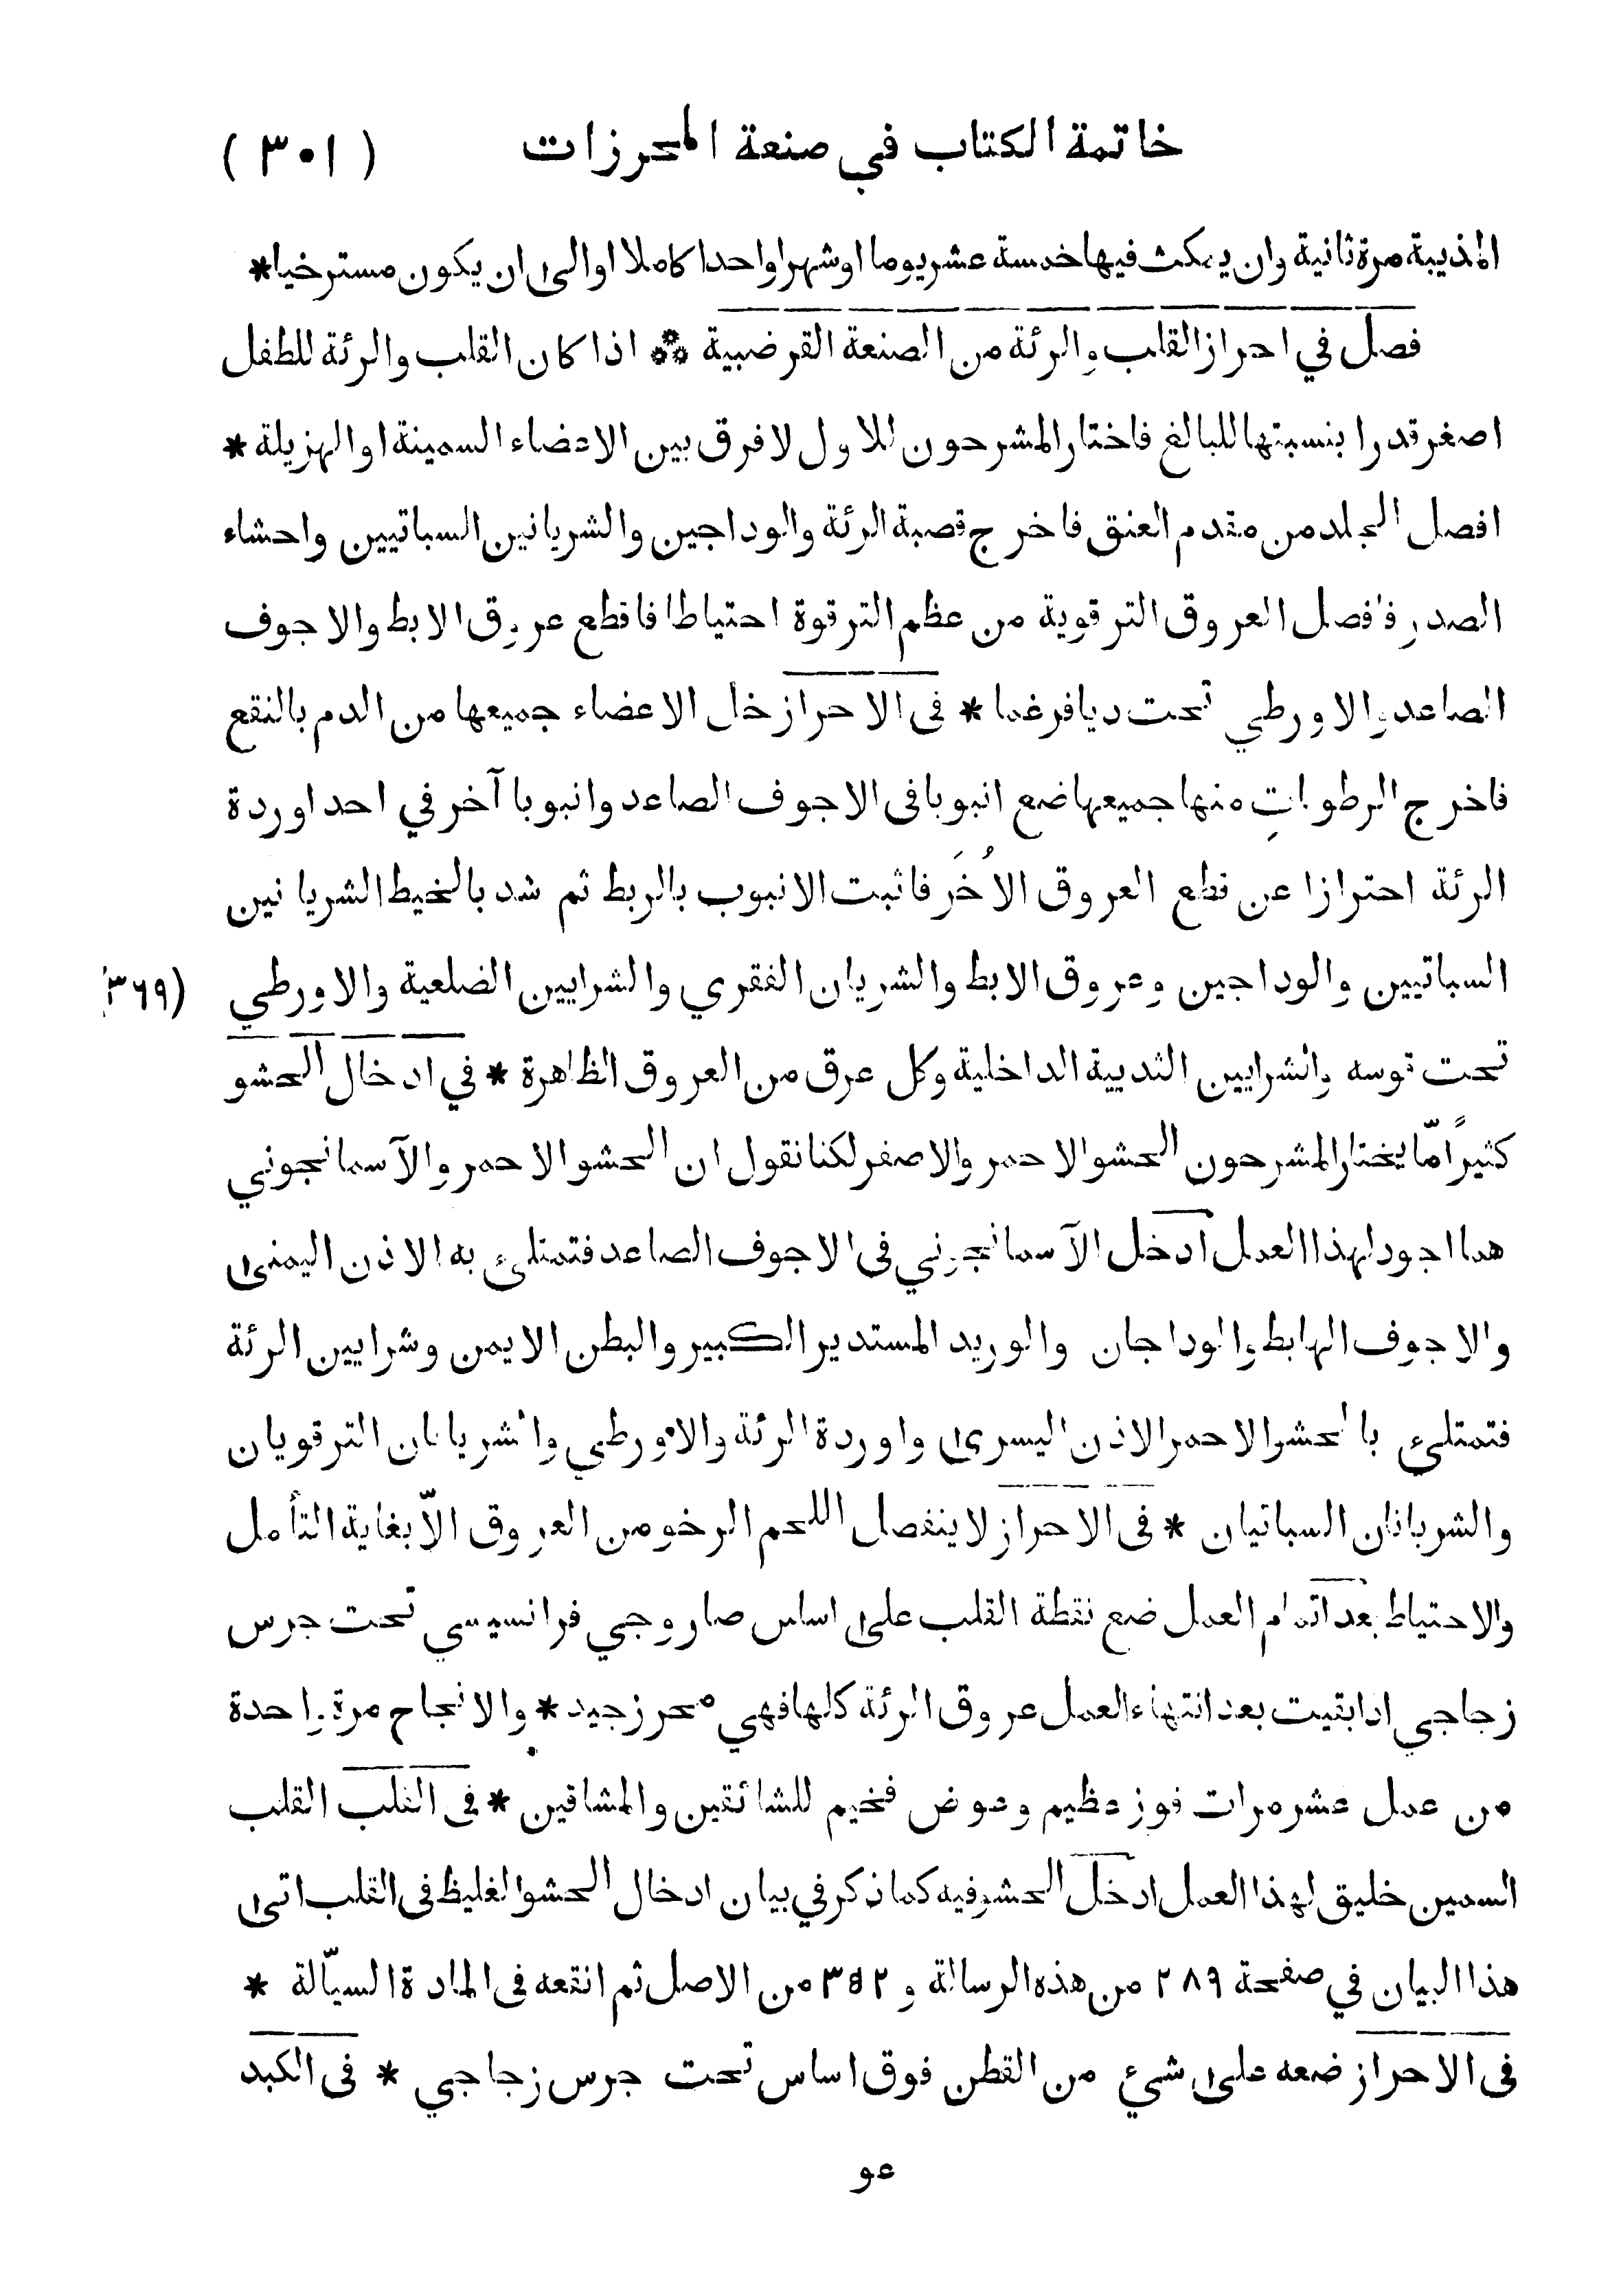 خاتمة الكتاب في صنعة المحرزات (٣٠١)
المذيبة مرة ثانية وان يمكث فيها خمسة عشر يوما او شهرا واحدا كاملا او الى ان يكون مسترخيا *
فصل في احراز القلب والرئة من الصنعة القرضبية ⁂ اذا كان القلب والرئة للطفل
اصغر قدرا بنسبتها للبالغ فاختار المشرحون للاول لا فرق بين الاعضاء السمينة او الهزيلة *
افصل الجلد من مقدم العنق فاخرج قصبة الرئة والوداجين والشريانين السباتيين واحشاء
الصدر فافصل العروق الترقوية من عظم الترقوة احتياطا فاقطع عروق الابط والاجوف
الصاعد والاورطي تحت ديافرغما * فى الاحراز خل الاعضاء جميعها من الدم بالنقع
فاخرج الرطوبات منها جميعها ضع انبوبا فى الاجوف الصاعد وانبوبا آخر في احد اوردة
الرئة احترازا عن قطع العروق الاُخَر فاثبت الانبوب بالربط ثم شد بالخيط الشريانين
السباتيين والوداجين وعروق الابط والشريان الفقري والشرايين الضلعية والاورطي (٣٦٩
تحت قوسه والشرايين الثديية الداخلية وكل عرق من العروق الظاهرة * في ادخال الحشو
كثيرًا مّا يختار المشرحون الحشو الاحمر والاصفر لكنا نقول ان الحشو الاحمر والآسمانجوني
هما اجود لهذا العمل ادخل الآسمانجوني فى الاجوف الصاعد فتمتلئ به الاذن اليمنى
والاجوف الهابط والوداجان والوريد المستدير الكبير والبطن الايمن وشرايين الرئة
فتمتلئ بالحشو الاحمر الاذن اليسرى واوردة الرئة والاورطي والشريانان الترقويان
والشريانان السباتيان * فى الاحراز لا ينفصل اللحم الرخو من العروق الاّ بغاية التأمل
والاحتياط بعد اتمام العمل ضع نقطة القلب على اساس صاروجي فرانسيسي تحت جرس
زجاجي اذا بقيت بعد انتهاء العمل عروق الرئة كلها فهي محرز جيد * والانجاح مرة واحدة
من عمل عشر مرات فوز عظيم وعوض فخيم للشائقين والمشاقين * فى القلب القلب
السمين خليق لهذا العمل ادخل الحشو فيه كما ذكر في بيان ادخال الحشو الغليظ فى القلب اتى
هذا البيان في صفحة ٢٨٩ من هذه الرسالة و ٣٥٢ من الاصل ثم انقعه فى المادة السيّالة *
فى الاحراز ضعه على شئ من القطن فوق اساس تحت جرس زجاجي * فى الكبد
عو